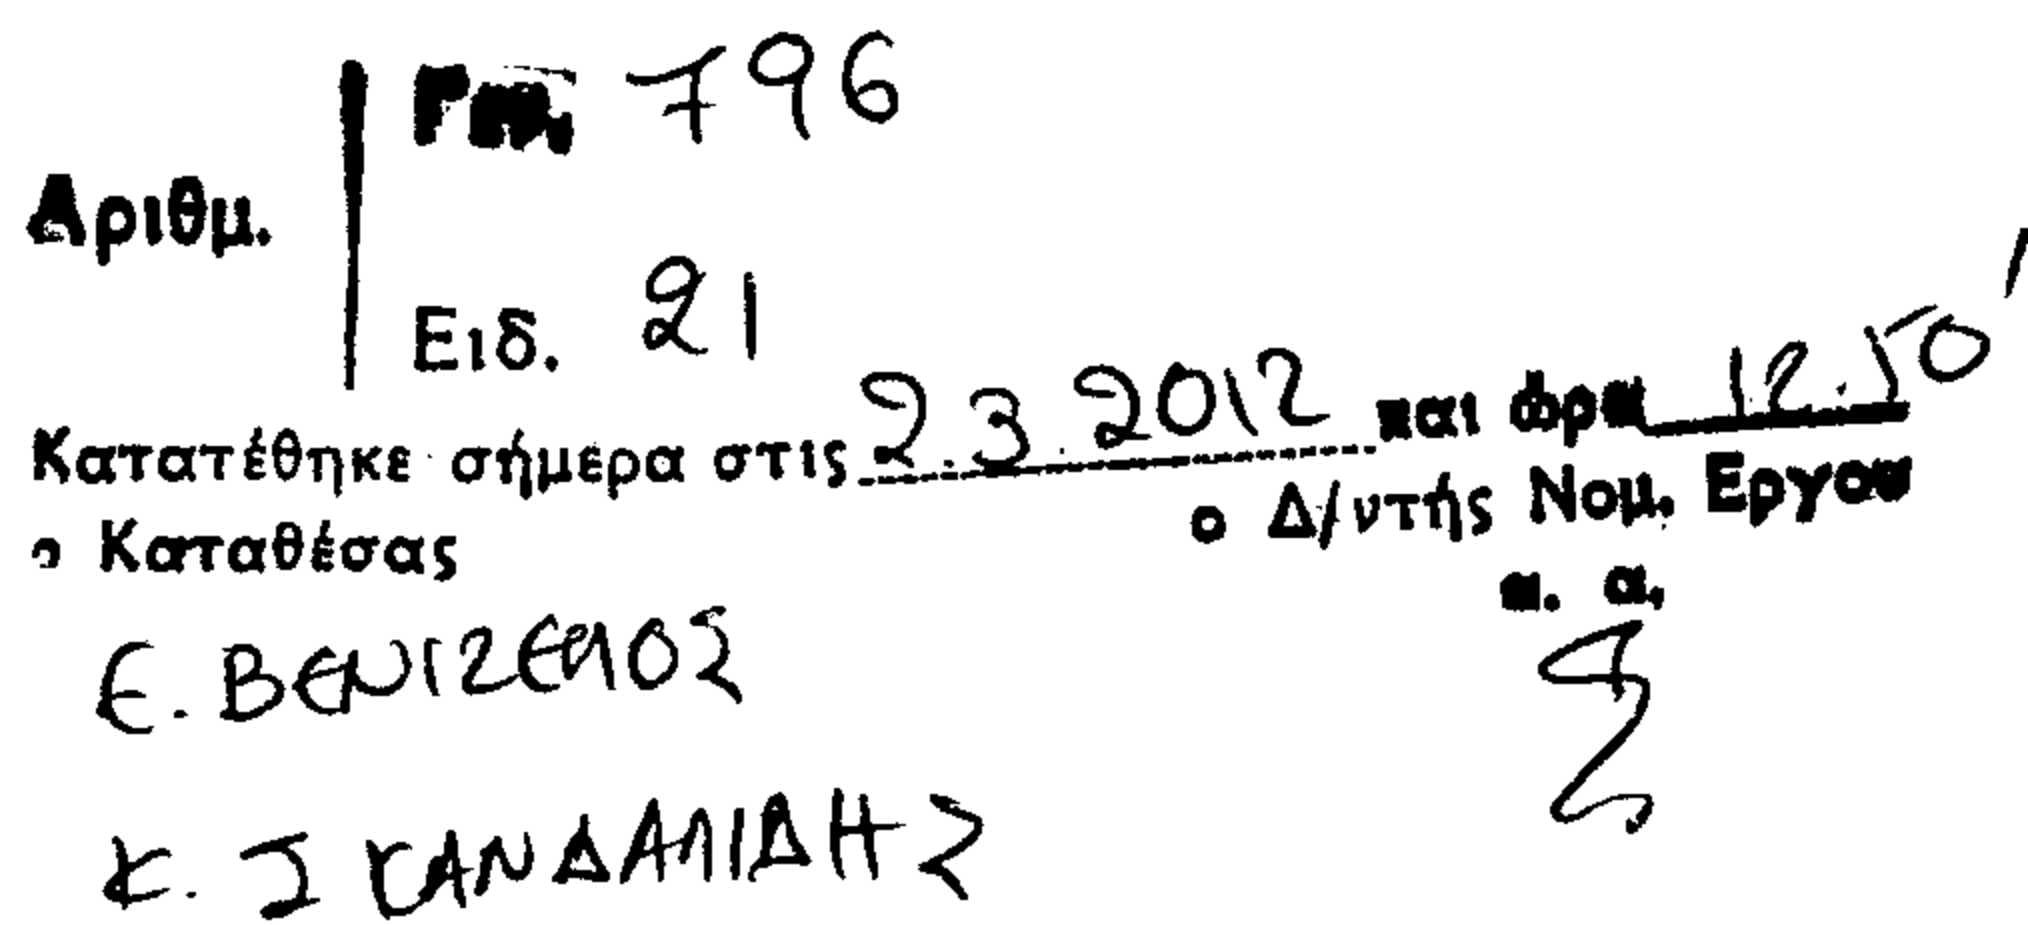 Γεν. 796
Αριθμ.
Ειδ. 21
Κατατέθηκε σήμερα στις 2.3.2012 και ώρα 12.50'
ο Καταθέσας
ο Δ/ντής Νομ. Εργου
κ. α.
Ε. ΒΕΝΙΖΕΛΟΣ
Κ. ΣΚΑΝΔΑΛΙΔΗΣ